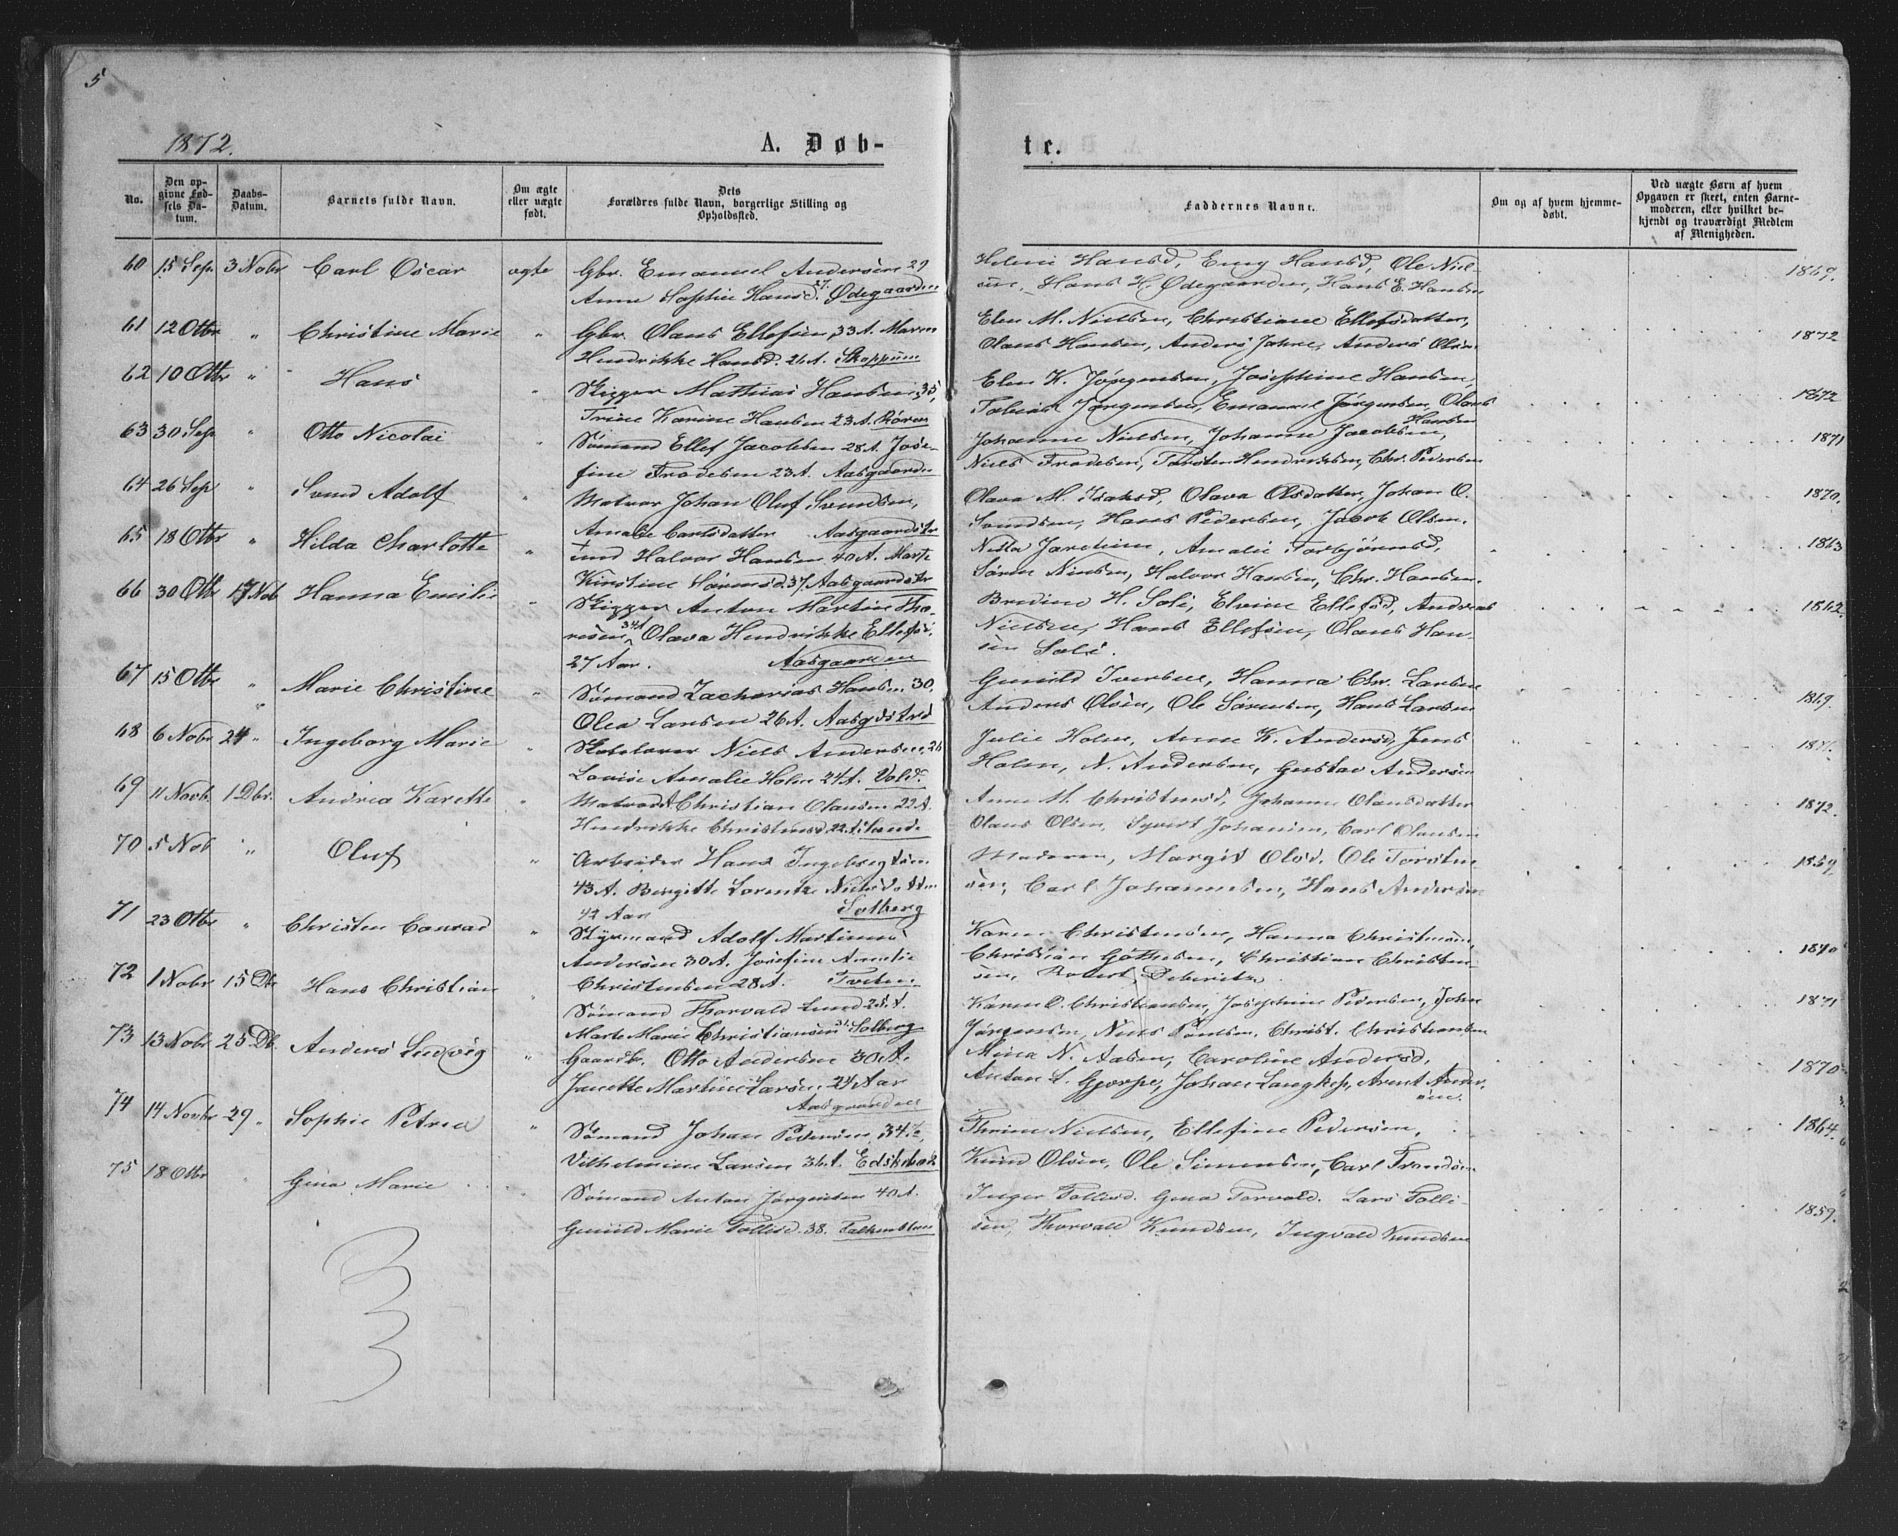 5
1872.
A. Døb-
te.
No.
Den opgivne Fødsels Datum.
Daabs-Datum.
Barnets fulde Navn.
Om ægte eller uægte født.
Dets Forældres fulde Navn, borgerlige Stilling og Opholdssted.
Faddernes Navne.
Om og af hvem hjemmedøbt.
Ved uægte Børn af hvem Opgaven er skeet, enten Barnemoderen, eller hvilket bekjendt og troværdigt Medlem af Menigheden.
60 15 Sep. 3 Nobr Carl Oscar ægte Gbr. Emanuel Andersen 29
Anne Sophie Hansd. 27. Ødegaarden
Helene Hansd, Emy Hansd, Ole Niel-
sen, Hans H. Ødegaarden, Hans E. Hansen
1869.
61 12 Otbr " Christine Marie " Gbr. Olaus Ellefsen, 33 A. Maren
Hendrikke Hansd. 26 A. Skoppum
Elen M. Nielsen, Christiane Ellefsdatter,
Olaus Hansen, Anders Jahre, Anders Olsen
1872
62 10 Otbr " Hans " Skipper Mathias Hansen, 35,
Trine Karine Hansen 23 A. Røren
Elen K. Jørgensen, Josephine Hansen,
Tobias Jørgensen, Emanuel Jørgensen, Olaus
Hansen
1872
63 30 Sep " Otto Nicolai " Sømand Ellef Jacobsen 28 A. Jose-
fine Frodesen 23 A. Aasgaarden
Johanne Nielsen, Johanne Jacobsen,
Niels Frodesen, Torsten Hendriksen, Chr. Pedersen
1871
64 26 Sep " Svend Adolf " Matros Johan Oluf Svendsen,
Amalie Carlsdatter Aasgaardstr
Olava M. Isaksd, Olava Olsdatter, Johan O.
Svendsen, Hans Pedersen, Jacob Olsen.
1870.
65 18 Otbr " Hilda Charlotte " Halvor Hansen 40 A. Marte
Kirstine Sørensd 37, Aasgaardstr
Amalie Torbjørnsd,
Søren Nielsen, Halvor Hansen, Chr. Hansen.
1863
66 30 Otbr 17 Nob Hanna Emilie " Skipper Anton Martin Tho-
resen 34 A, Olava Hendrikke Ellefs.
27 Aar. Aasgaarden
H. Soli, Elvine Ellefsd, Andreas
Nielsen, Hans Ellefsen, Olaus Han-
sen Soli.
1862.
67 15 Otbr " Marie Christine " Sømand Zacharias Hansen 30.
Olea Larsen 26 A. Aasgdstrd
Gunild Iversen, Hanna Chr. Larsen
Anders Olsen, Ole Sørensen, Hans Larsen
1869.
68 6 Nobr 24 " Ingeborg Marie " Niels Andersen, 26
Lovise Amalie Holm 24 A. Vold.
Julie Holm, Anne K. Andersd, Jens
Holm, N. Andersen, Gustav Andersen
69 11 Novb. 1 Dbr. Andrea Karette " Matros Christian Olausen 22 A.
Hendrikke Christensd 22 A.
Anne M. Christensd, Johanne Olausdatter
Olaus Olsen, Syvert Johansen, Carl Olausen
1872.
70 5 Nob " Oluf " Arbeider Hans Ingebregtsen
43 A. Bergitte Lorentze Nielsdatter
42 Aar Solberg
Moderen, Margit Olsd. Ole Torsten-
sen, Carl Johannesen, Hans Andersen
1859
71 23 Otbr " Christen Conrad " Styrmand Adolf Martinus
Andersen 30 A. Josefine Amalie
Christensen 28 A. Tveten
Karen Christensen, Hanna Christensen,
Christian Gothesen, Christian Christen-
sen, Robert Deberitz
1870
72 1 Nobr 15 Db Hans Christian " Sømand Thorvald Lund 25 A.
Marte Marie Christiansen Solberg
Karen O. Christiansen, Josephine Pedersen, John
Jørgensen, Niels Poulsen, Christ. Christiansen
1871
73 13 Nobr 25 Db. Anders Ludvig " Gaardbr. Otto Andersen 30 A.
Janette Martine Larsen 24 Aar
Aasgaarden
Mina N. Aasen, Caroline Andersd,
Anton L. Gjerpe, Johan Langkep, Arent Ander-
sen.
1870
74 14 Novbr 29. " Sophie Petrea " Sømand Johan Pedersen, 34 A,
Vilhelmine Larsen 36 A. Edskebæk
Thrine Nielsen, Ellefine Pedersen,
Knud Olsen, Ole Simensen, Carl Frandsen
1864.
75 18 Otbr " Gina Marie " Sømand Anton Jørgensen 40 A.
Gunild Marie Tollisd. 38. Falkensteen
Inger Tollisd. Gina Torvald. Lars Tolli-
sen, Thorvald Knudsen, Ingvald Knudsen
1859.